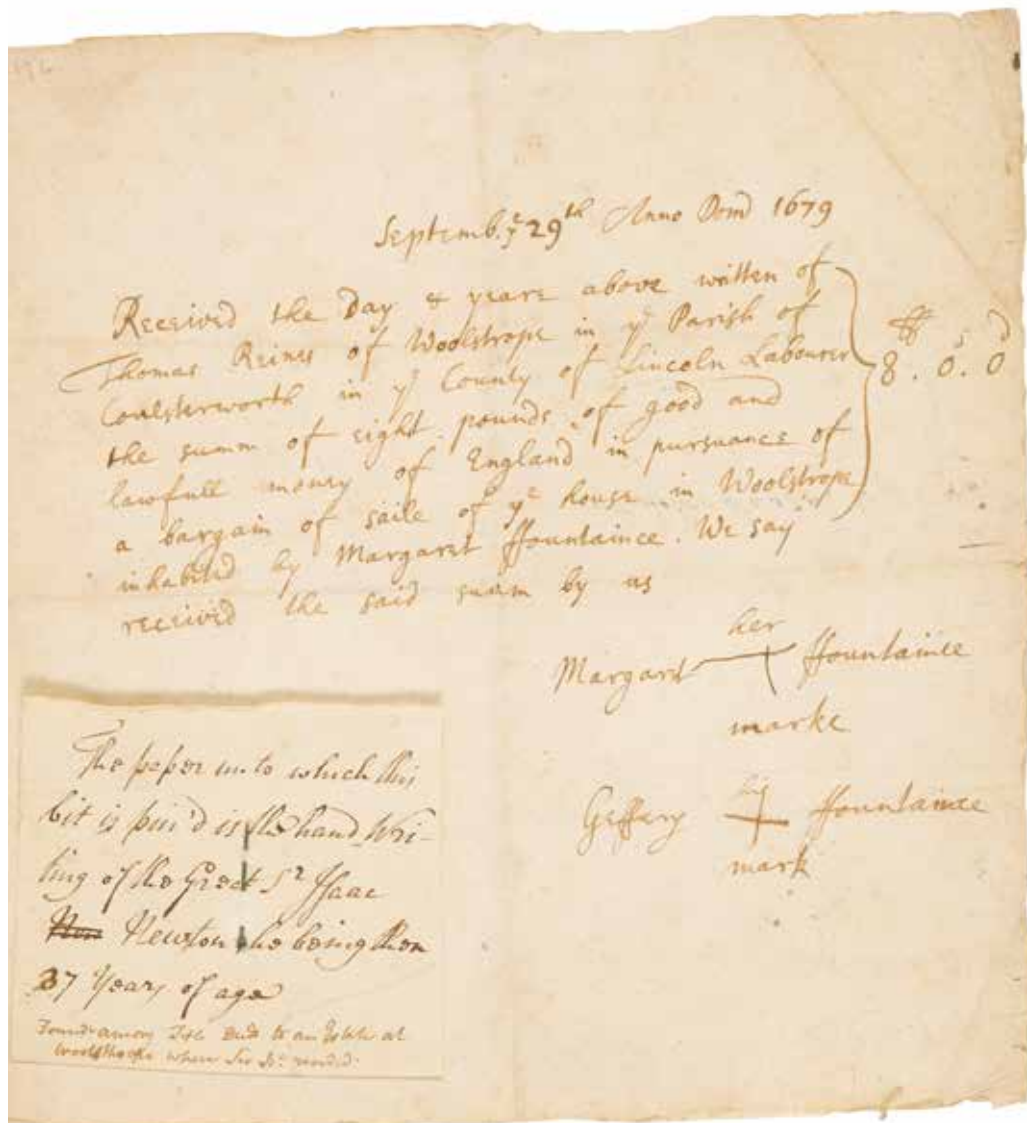 Septemb. yᵉ 29th Anno Domⁱ 1679
Received the Day & yeare above written of
Thomas Reines of Woolstrope in yᵉ Parish of
Coulsterworth in yᵉ County of Lincoln Labourer
the summ of eight pounds of good and
lawfull money of England in pursuance of
a bargain of saile of yᵉ house in Woolstrope
inhabited by Margaret ffountaince. We say
received the said summ by us
ˡⁱ s d
8 . 0 . 0
her
Margaret ffountaince
marke
his
Geffery ffountaince
mark
The paper unto which this
bit is pin'd is the hand Wri-
ting of the Great Sr Isaac
New Newton he being then
37 Years of age
Found among Title Deeds to an Estate at
Woolsthorpe where Sir Is: resided.